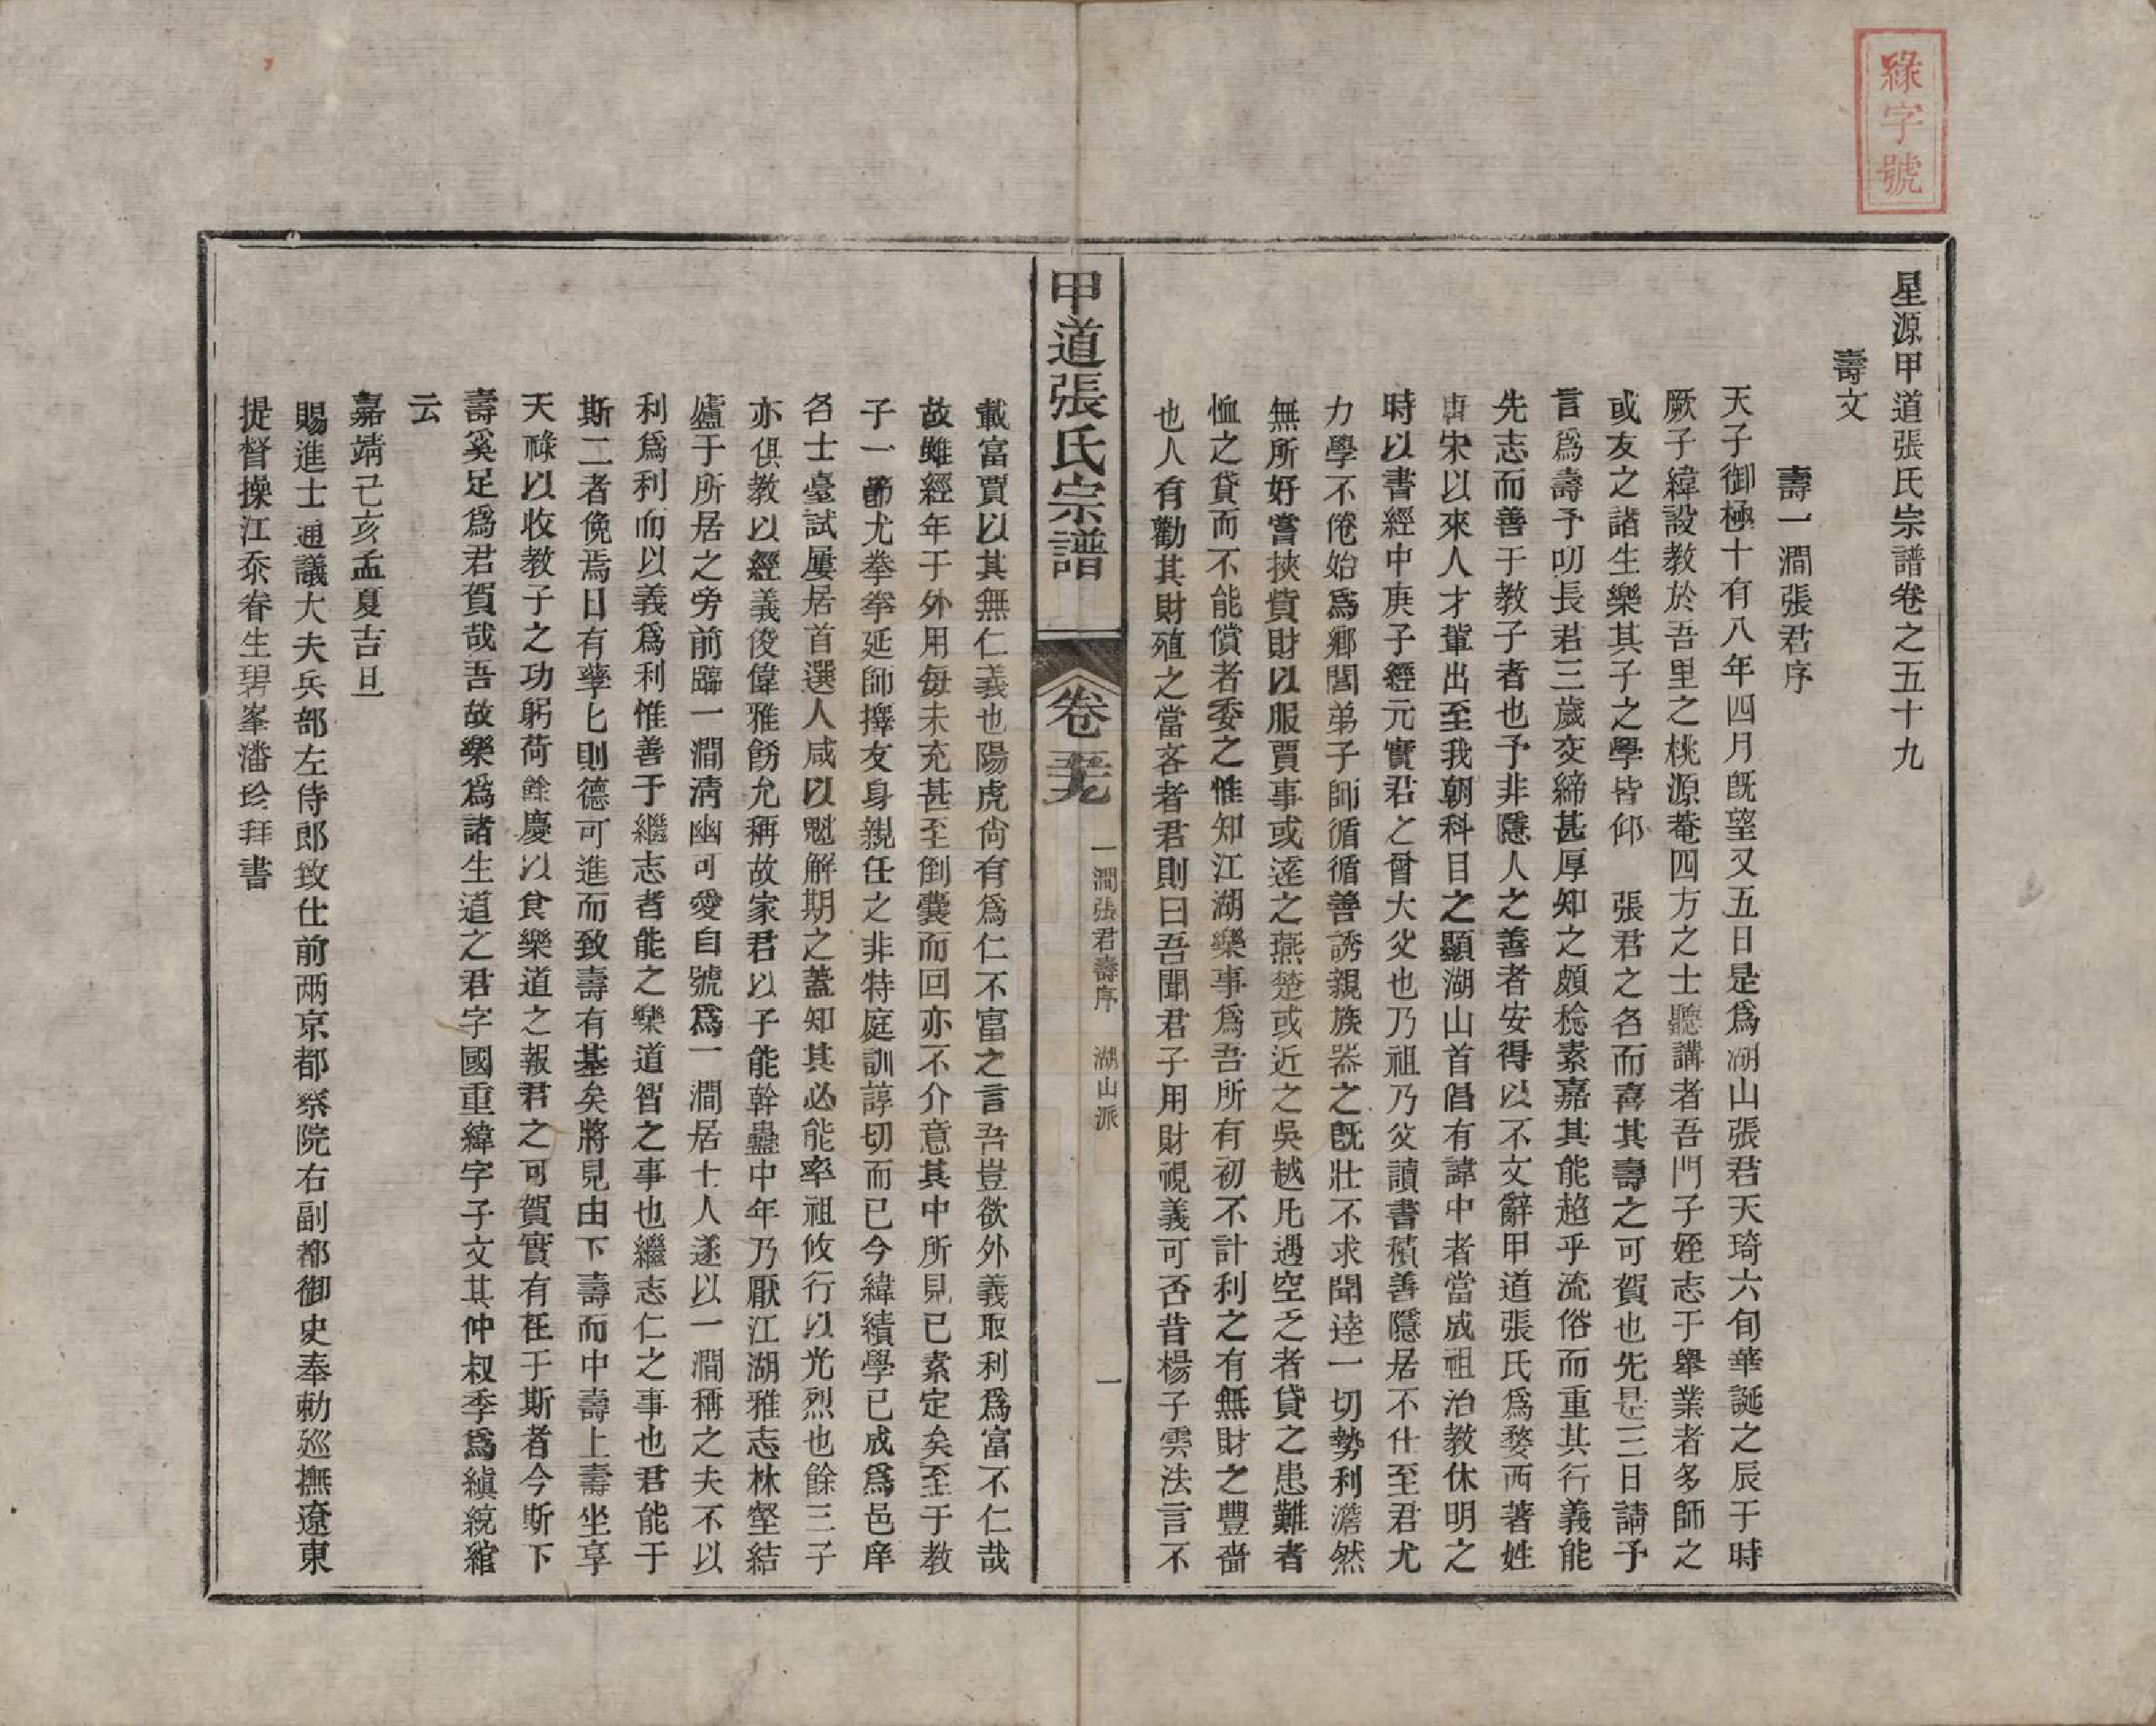 緣字號
星源甲道張氏宗譜卷之五十九
壽文
壽一澗張君序
天子御極十有八年四月旣望又五日是爲湖山張君天琦六旬華誕之辰于時
厥子緯設教於吾里之桃源菴四方之士聽講者吾門子姪志于舉業者多師之
或友之諸生樂其子之學皆仰 張君之各而喜其壽之可賀也先是三日請予
言爲壽予叨長君三歲交締甚厚知之頗稔素嘉其能超乎流俗而重其行義能
先志而善于教子者也予非隱人之善者安得以不文辭甲道張氏爲婺西著姓
唐宋以來人才輩出至我朝科目之顯湖山首倡有諱中者當成祖治教休明之
時以書經中庚子經元實君之曾大父也乃祖乃父讀書積善隱居不仕至君尤
力學不倦始爲鄉閭弟子師循循善誘親族器之旣壯不求聞逹一切勢利澹然
無所好嘗挾貲財以服賈事或逺之燕楚或近之吳越凡遇空乏者貸之患難者
恤之貸而不能償者委之惟知江湖樂事爲吾所有初不計利之有無財之豐嗇
也人有勸其財殖之當吝者君則曰吾聞君子用財視義可否昔楊子雲法言不
甲道張氏宗譜 卷五十九 一澗張君壽序 湖山派 一
載富賈以其無仁義也陽虎尙有爲仁不富之言吾豈欲外義取利爲富不仁哉
故雖經年于外用每未充甚至倒囊而回亦不介意其中所見已素定矣至于教
子一節尤拳拳延師擇友身親任之非特庭訓諄切而已今緯績學已成爲邑庠
各士臺試屢居首選人咸以魁解期之蓋知其必能率祖攸行以光烈也餘三子
亦俱教以經義俊偉雅飭允稱故家君以子能幹蠱中年乃厭江湖雅志林壑結
廬于所居之旁前臨一澗淸幽可愛自號爲一澗居士人遂以一澗稱之夫不以
利爲利而以義爲利惟善于繼志者能之樂道智之事也繼志仁之事也君能于
斯二者俛焉日有孳匕則德可進而致壽有基矣將見由下壽而中壽上壽坐享
天祿以收教子之功躬荷餘慶以食樂道之報君之可賀實有在于斯者今斯下
壽奚足爲君賀哉吾故樂爲諸生道之君字國重緯字子文其仲叔季爲縝綂綰
云
嘉靖己亥孟夏吉旦
賜進士通議大夫兵部左侍郎致仕前两京都察院右副都御史奉勅廵撫遼東
提督操江忝眷生碧峯潘珍拜書